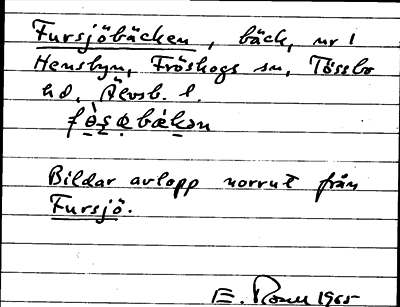 Fursjöbäcken, bäck, nr 1
Hensbyn, Fröskogs sn, Tössbo
hd, Älvsb. l.
Bildar avlopp norrut från
Fursjö.
E. 1965